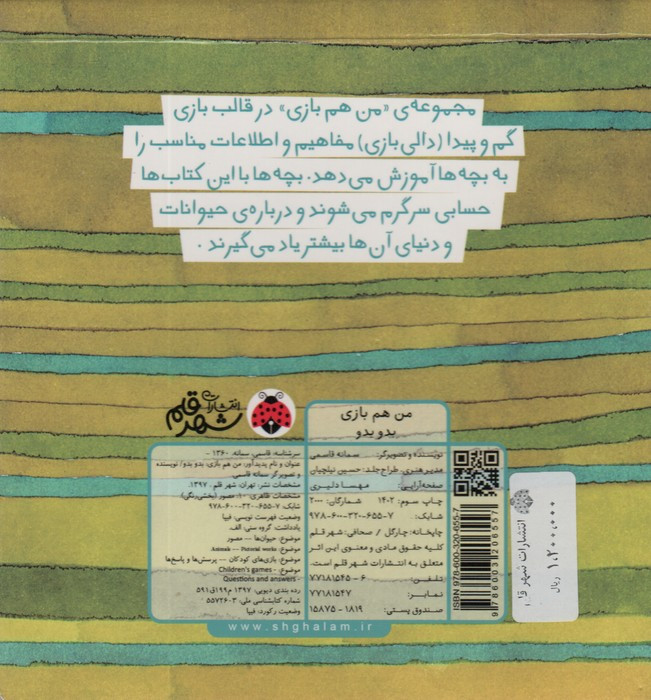 مجموعه‌ی «من هم بازی» در قالب بازی
گم و پیدا (دالی‌بازی) مفاهیم و اطلاعات مناسب را
به بچه‌ها آموزش می‌دهد. بچه‌ها با این کتاب‌ها
حسابی سرگرم می‌شوند و درباره‌ی حیوانات
و دنیای آن‌ها بیشتر یاد می‌گیرند.
انتشارات
شهر قلم
من هم بازی
بدو بدو
نویسنده و تصویرگر: سمانه قاسمی
مدیر هنری، طراح جلد: حسین نیلچیان
صفحه‌آرایی: مهسا دلیری
چاپ سوم: ۱۴۰۲ شمارگان: ۲۰۰۰
شابک: ۹۷۸-۶۰۰-۳۲۰-۶۵۵-۷
چاپخانه: چارگل / صحافی: شهر قلم
کلیه حقوق مادی و معنوی این اثر
متعلق به انتشارات شهر قلم است.
تلفن: ۷۷۱۸۱۵۴۵ - ۶
نمابر: ۷۷۱۸۱۵۴۷
صندوق پستی: ۱۸۱۹ - ۱۵۸۷۵
سرشناسه: قاسمی، سمانه، ۱۳۶۰ -
عنوان و نام پدیدآور: من هم بازی: بدو بدو/ نویسنده
و تصویرگر سمانه قاسمی.
مشخصات نشر: تهران: شهر قلم، ۱۳۹۷.
مشخصات ظاهری: ۱۰ص: مصور (بخشی رنگی)
شابک: ۹۷۸-۶۰۰-۳۲۰-۶۵۵-۷
وضعیت فهرست نویسی: فیپا
یادداشت: گروه سنی: الف.
موضوع: حیوان‌ها -- مصور
موضوع: Animals -- Pictorial works
موضوع: بازی‌های کودکان -- پرسش‌ها و پاسخ‌ها
موضوع: Children's games -
Questions and answers -
رده بندی دیویی: ۱۳۹۷ م۱۹۹ق۵۹۱
شماره کتابشناسی ملی: ۵۵۷۲۶۰۳
وضعیت رکورد: فیپا
ISBN 978-600-320-655-7
9786003206557
www.shghalam.ir
انتشارات شهر
۱.۲۰۰.۰۰۰
ریال